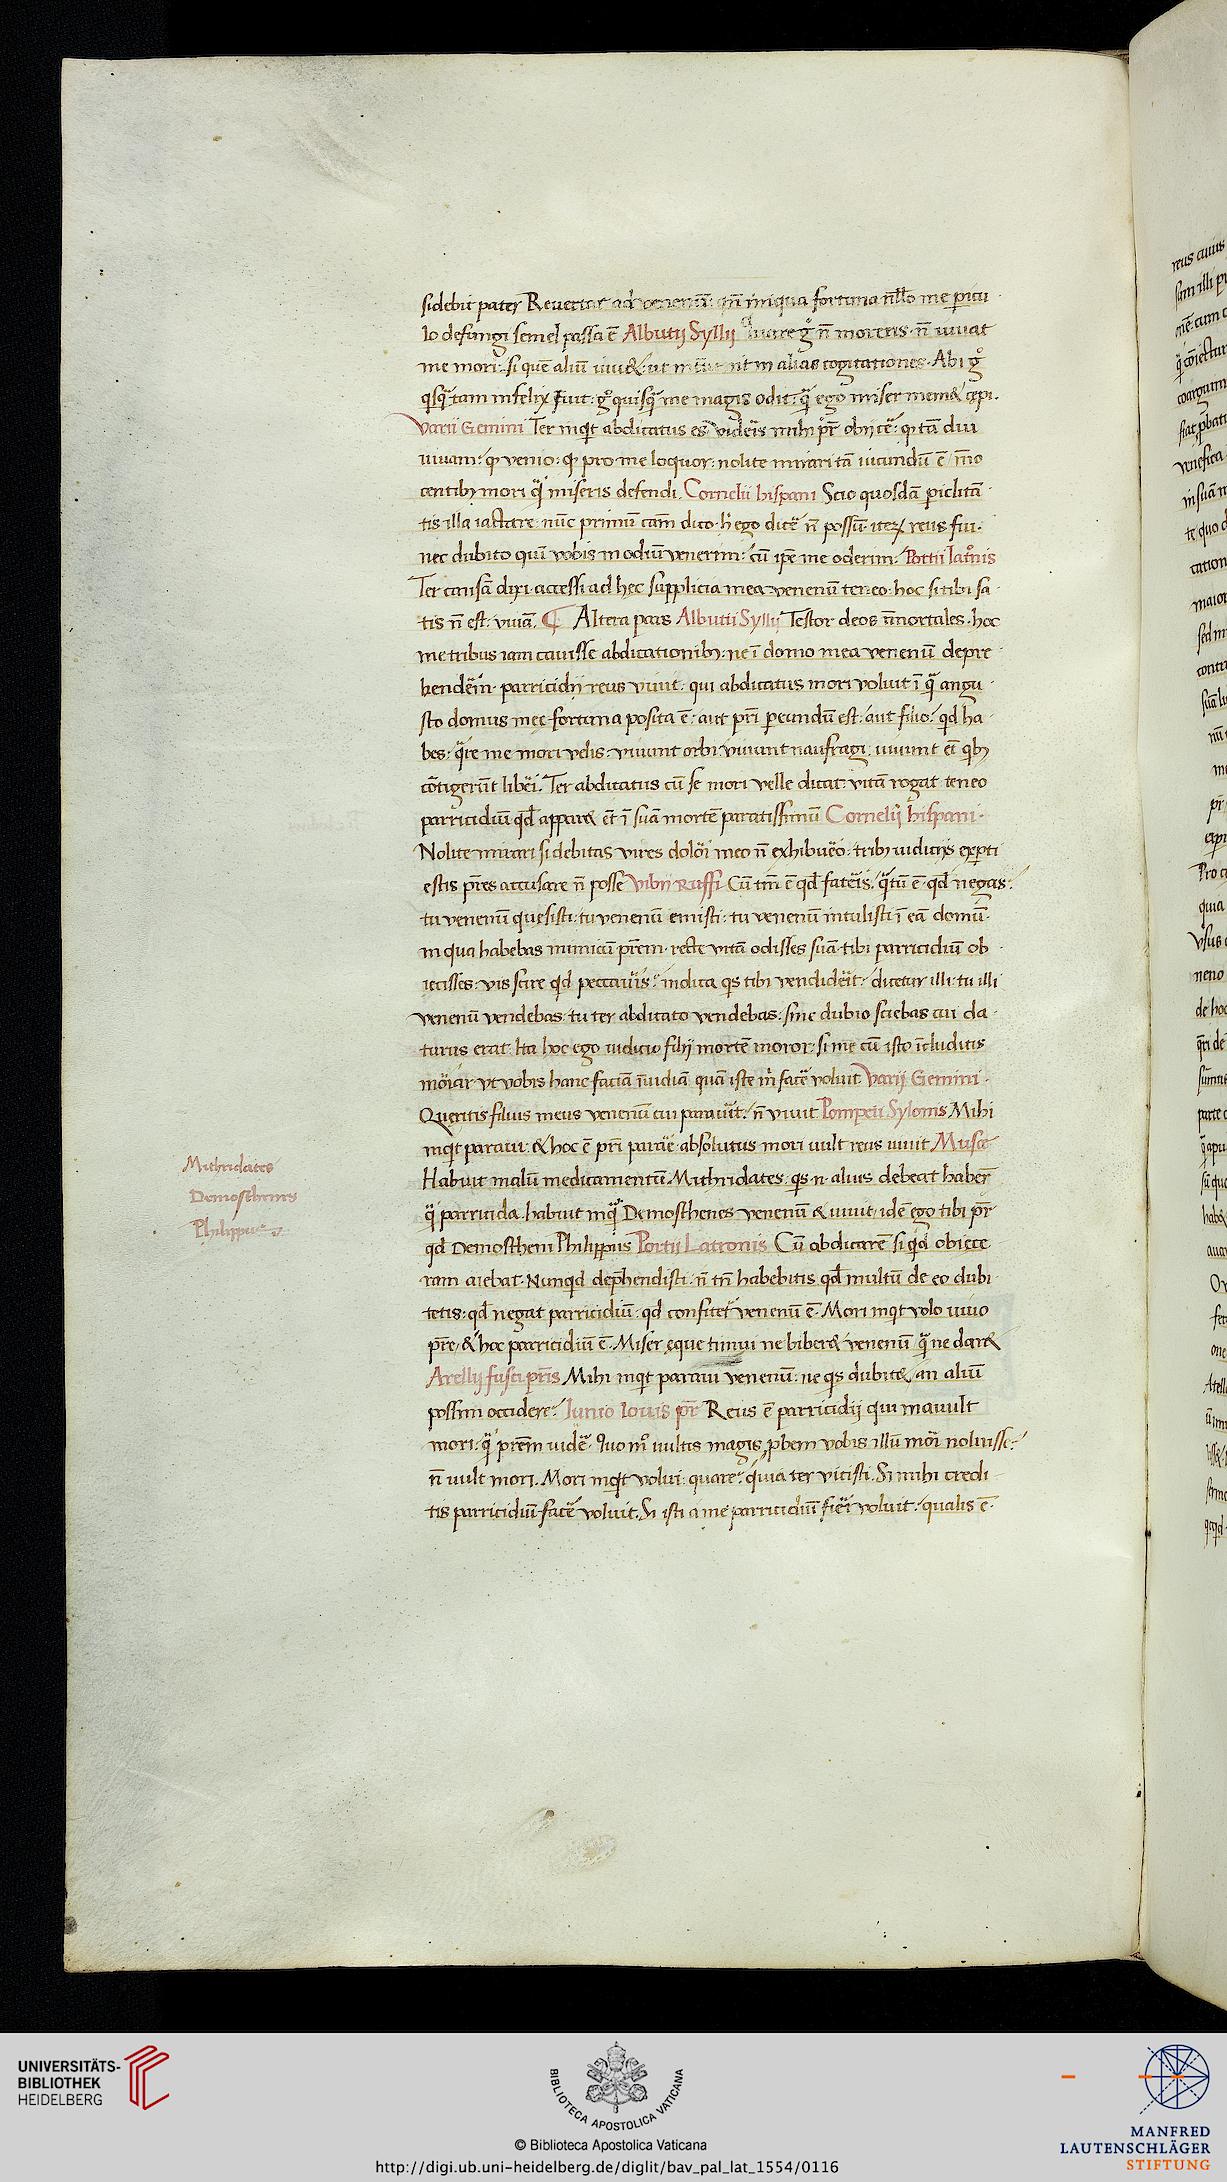 sidebit pater Revertar ad venenū: qm̄ iniqua fortuna nłło me picu
lo defungi semel passa ē Albutij Syllij Quare gͦ n̄ moreris. n̄ vivat
me mori: si quē aliū viu& ut in alias cogitationes. Abi gͦ
qsq̄ tam infelix fuit: gͦ quisq̄ me magis odit: q̄ ego miser mem& cepi.
Varii Gemini Ter inqt abdicatus es videris mihi pr̄ obijcē: q tā diu
vivam: q venio: q pro me loquor: nolite mirari tā iucundū ē īno
centiby mori q̄ miseris defendi. Cornelii hispani Scio quosdā piclitā
tis illa iactare: nūc primū cam dico. h ego dicē n̄ possū. iteɀ reus fui.
nec dubito qui vobis in odiū venerim: cū ipe me oderim. Portii latͦnis
Ter causā dixi: accessi ad hęc supplicia mea venenū teneo: hoc si tibi sa
tis n̄ est: vivā. ¶ Altera pars Albutii Syllij Testor deos īmortales. hoc
me tribus iam cavisse abdicationiby: ne ī domo mea venenū depre
henderē. parricidij reus vivit: qui abdicatus mori voluit ī q̄ angu
sto domus mee fortuna posita ē: aut pri pereundū est: aut filio: qd ha
bes: q̄re me mori velis: vivunt orbi vivunt naufragi, vivunt et qby
cōtigerūt liberi. Ter abdicatus cū se mori velle dicat: vitā rogat teneo
parricidiū qd appar& et ī suā mortē paratissimū Cornelij hispani.
Nolite mirari si debitas vires dolori meo n̄ exhibuero: triby iudicijs experti
estis pr̄es accusare n̄ posse Vibij Ruffi Cū tm̄ ē qd fateris. q̄tū ē qd negas:
tu venenū quesisti: tu venenū emisti: tu venenū intulisti ī eā domū.
in qua habebas inimicū prēm. recte vitā odisses suā. tibi parricidiū ob
iecisses: vis scire qd peccaveris: indica qs tibi vendiderit: dicetur illi: tu illi
venenū vendebas: tu ter abdicato vendebas: sine dubio sciebas cui da
turus erat. Ita hoc ego iudicio filij mortē moror: si me cū isto īcluditis
moriar ut vobis hanc faciā īvidiā quā iste m̄ facē voluit Varij Gemini.
Queritis filius meus venenū cui paravit: n̄ vivit Pompeii Sylonis Mihi
inqt paravi: & hoc ē pri parare absolutus mori vult reus vivit Musę
Habuit malū medicamentū Mithridates. qs n. alius debeat haberē
q̄ parricida. habuit inq̄ Demosthenes venenū & vivit: idē ego tibi pr̄
qd Demostheni Philippus Portij Latronis Cū abdicarē si qd obięce
ram aiebat. Nunqd dephendisti. n̄ tn̄ habebitis qd multū de eo dubi
tetis: qd negat parricidiū: qd confitet venenū ē. Mori inqt volo vivo
pr̄e, & hoc parricidiū ē. Miser ęque timui ne biber& venenū q̄ ne dar&
Arellij fusci pr̄is Mihi inqt paravi venenū: ne qs dubit& an aliū
possim occidere: Iunio Iovis pr̄ Reus ē parricidij qui mavult
mori: q̄ prēm vidē. Quo m̄ vultis magis pbem vobis illū mori noluisse:
n̄ vult mori. Mori inqt volui: quare: quia ter vicisti. Si mihi credi
tis parricidiū facē voluit. Si isti a me parricidiū fieri voluit: qualis ē.
Mithridates
Demosthenes
Philippus
UNIVERSITÄTS-
BIBLIOTHEK
HEIDELBERG
BIBLIOTECA APOSTOLICA VATICANA
© Biblioteca Apostolica Vaticana
http://digi.ub.uni-heidelberg.de/diglit/bav_pal_lat_1554/0116
MANFRED
LAUTENSCHLÄGER
STIFTUNG